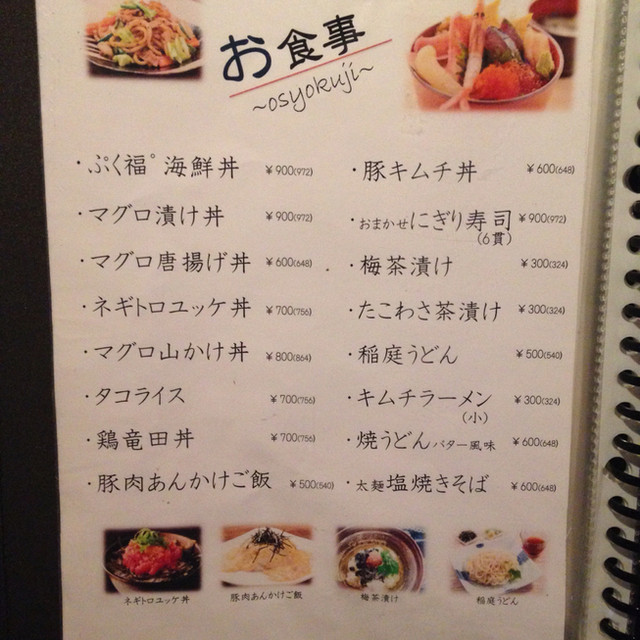 お食事
~osyokuji~
・ぷく福゜海鮮丼 ¥900(972)
・マグロ漬け丼 ¥900(972)
・マグロ唐揚げ丼 ¥600(648)
・ネギトロユッケ丼 ¥700(756)
・マグロ山かけ丼 ¥800(864)
・タコライス ¥700(756)
・鶏竜田丼 ¥700(756)
・豚肉あんかけご飯 ¥500(540)
・豚キムチ丼 ¥600(648)
・おまかせにぎり寿司 ¥900(972)
(6貫)
・梅茶漬け ¥300(324)
・たこわさ茶漬け ¥300(324)
・稲庭うどん ¥500(540)
・キムチラーメン ¥300(324)
(小)
・焼うどんバター風味 ¥600(648)
・太麺塩焼きそば ¥600(648)
ネギトロユッケ丼
豚肉あんかけご飯
梅茶漬け
稲庭うどん